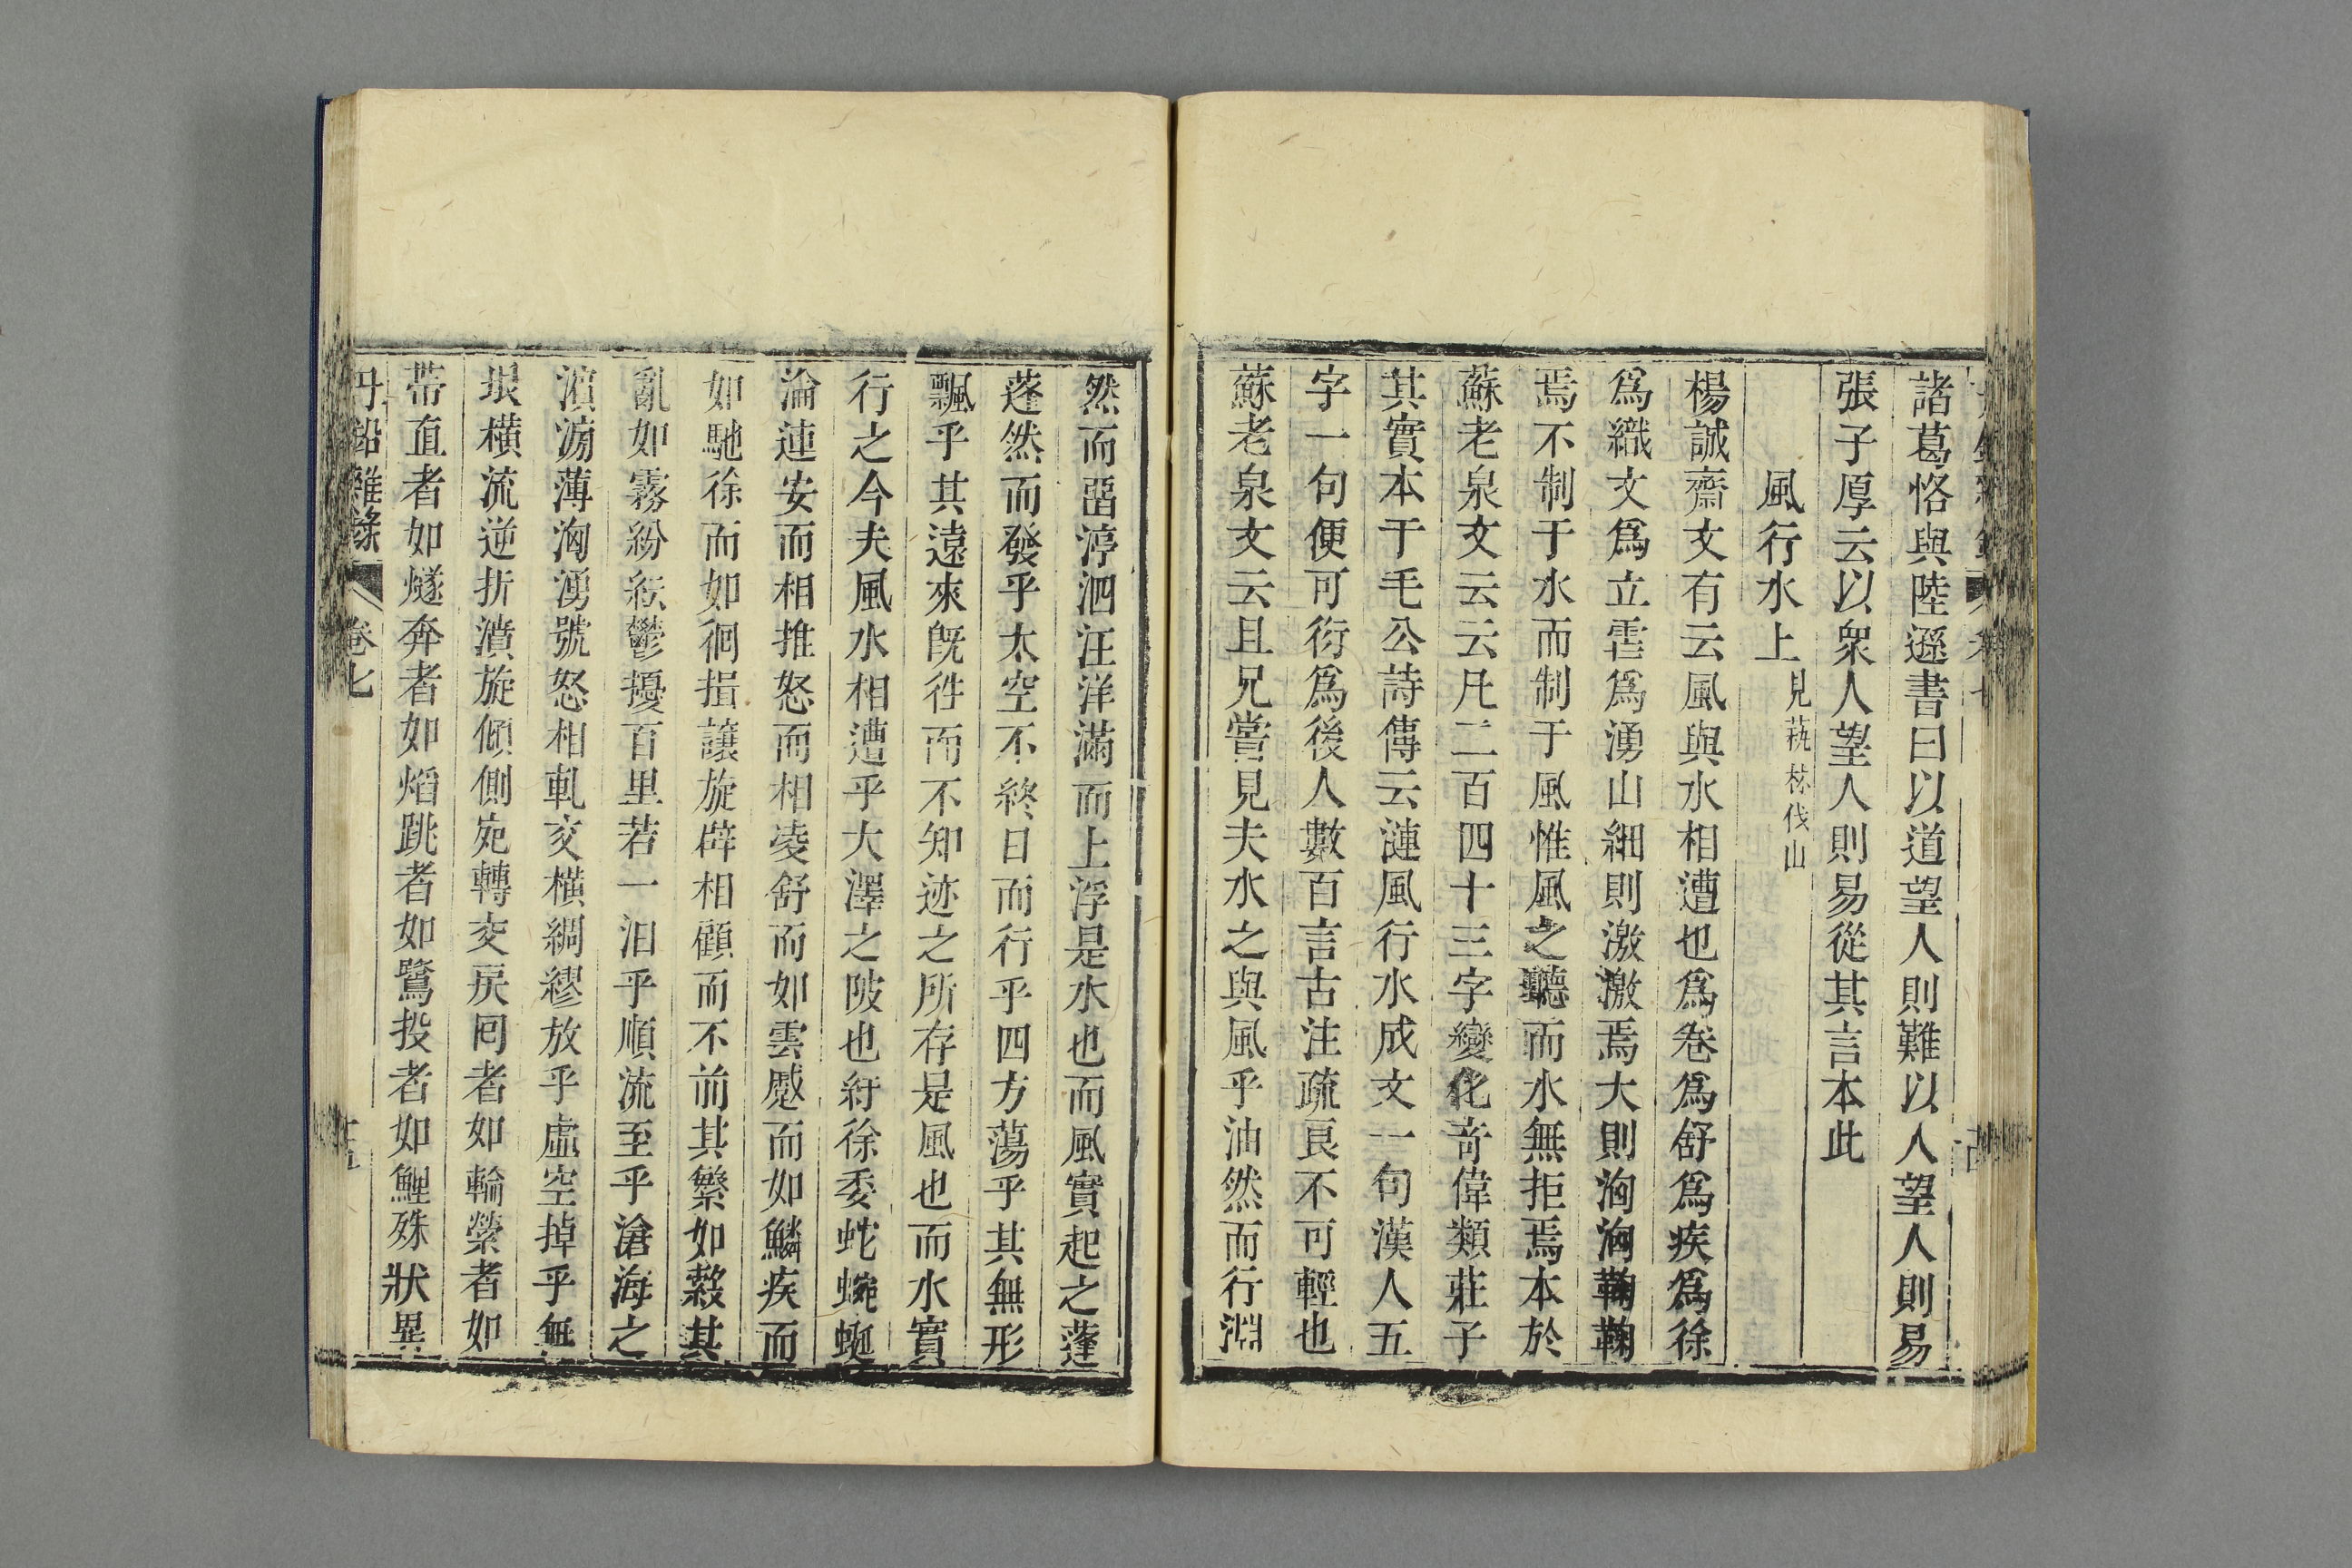 諸葛恪與陸遜書曰以道望人則難以人望人則易
張子厚云以衆人望人則易從其言本此
風行水上見蓺林伐山
楊誠齋文有云風與水相遭也爲卷爲舒爲疾爲徐
爲織文爲立雪爲湧山細則激激焉大則洶洶鞠鞠
焉不制于水而制于風惟風之聽而水無拒焉本於
蘇老泉文云云凡二百四十三字變化奇偉類莊子
其實本于毛公詩傳云漣風行水成文一句漢人五
字一句便可衍爲後人數百言古注疏良不可輕也
蘇老泉文云且兄嘗見夫水之與風乎油然而行淵
然而㽞渟泗汪洋滿而上浮是水也而風實起之蓬
蓬然而發乎太空不終日而行乎四方蕩乎其無形
飄乎其遠來既徃而不知迹之所存是風也而水實
行之今夫風水相遭乎大澤之陂也紆徐委蛇蜿蜒
淪漣安而相推怒而相凌舒而如雲蹙而如鱗疾而
如馳徐而如徊揖讓旋辟相顧而不前其繁如縠其
亂如霧紛紜鬱擾百里若一汨乎順流至乎滄海之
濵滂薄洶湧號怒相軋交橫綢繆放乎虛空掉乎無
垠橫流逆折濆旋傾側宛轉交戾囘者如輪縈者如
帶直者如燧奔者如熖跳者如鷺投者如鯉殊狀異
丹鉛雜錄 卷七 十五